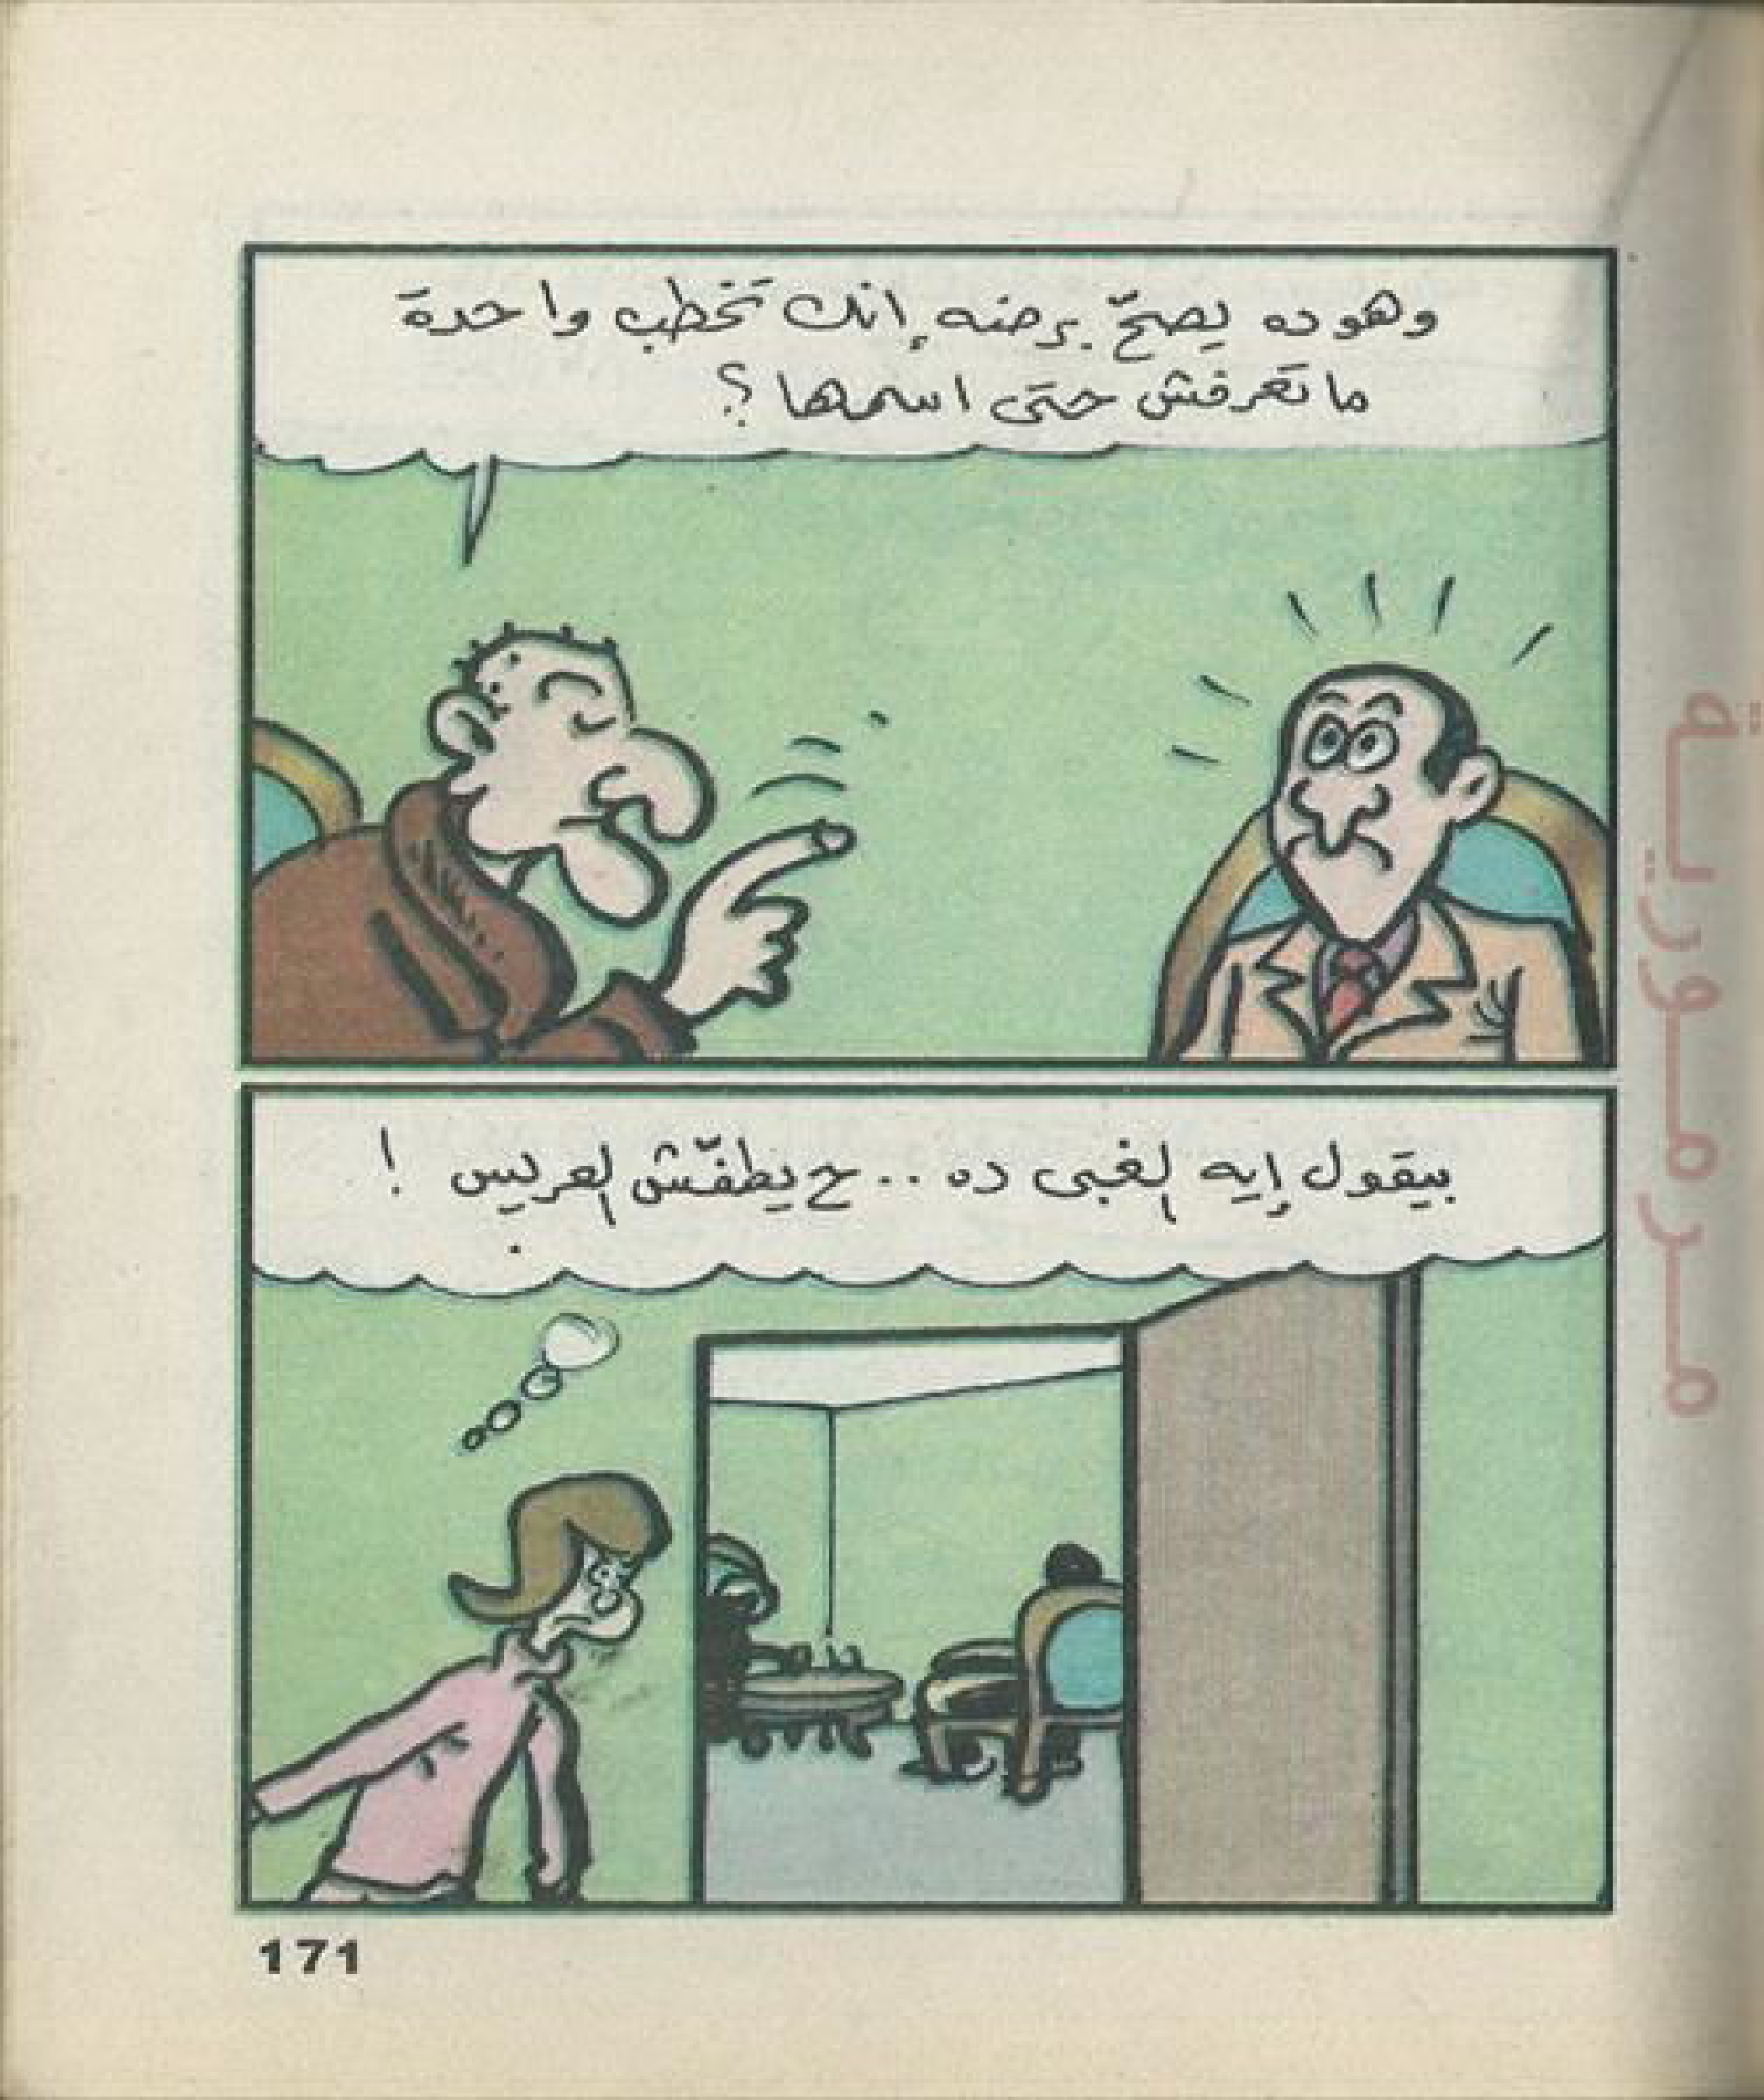 وهو ده يصحّ برضه إنك تخطب واحدة
ما تعرفش حتى اسمها ؟
بيقول إيه الغبى ده .. ح يطفّش العريس !
171
مـرمـوريـة